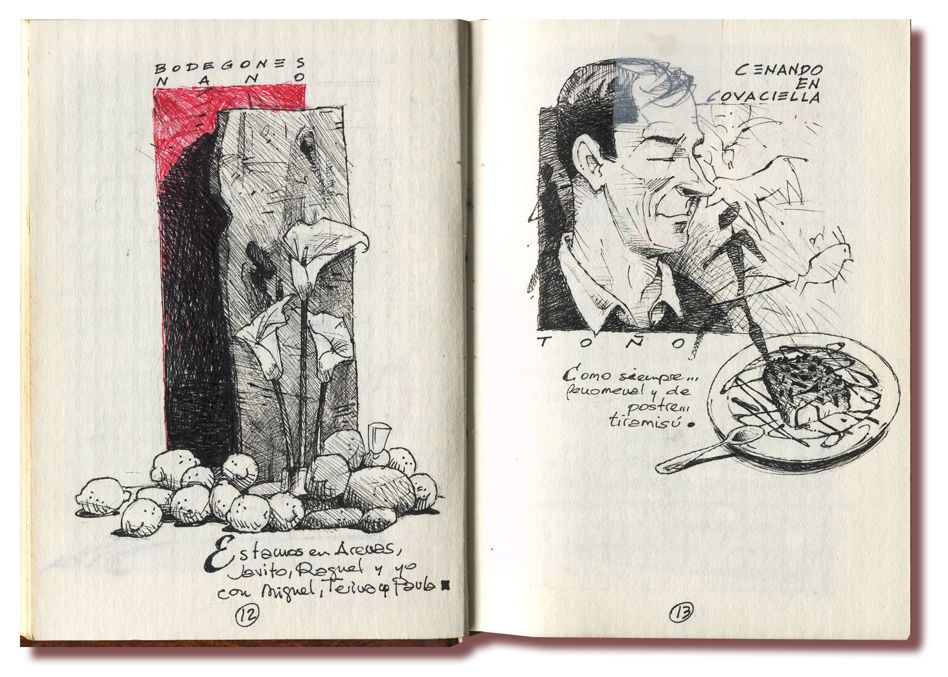 BODEGONES
NANO
Estamos en Arenas,
Javito, Raquel y yo
con Miguel, Terina y Paula
12
CENANDO
EN
COVACIELLA
TOÑO
Como siempre...
fenomenal y de
postre...
tiramisú.
13